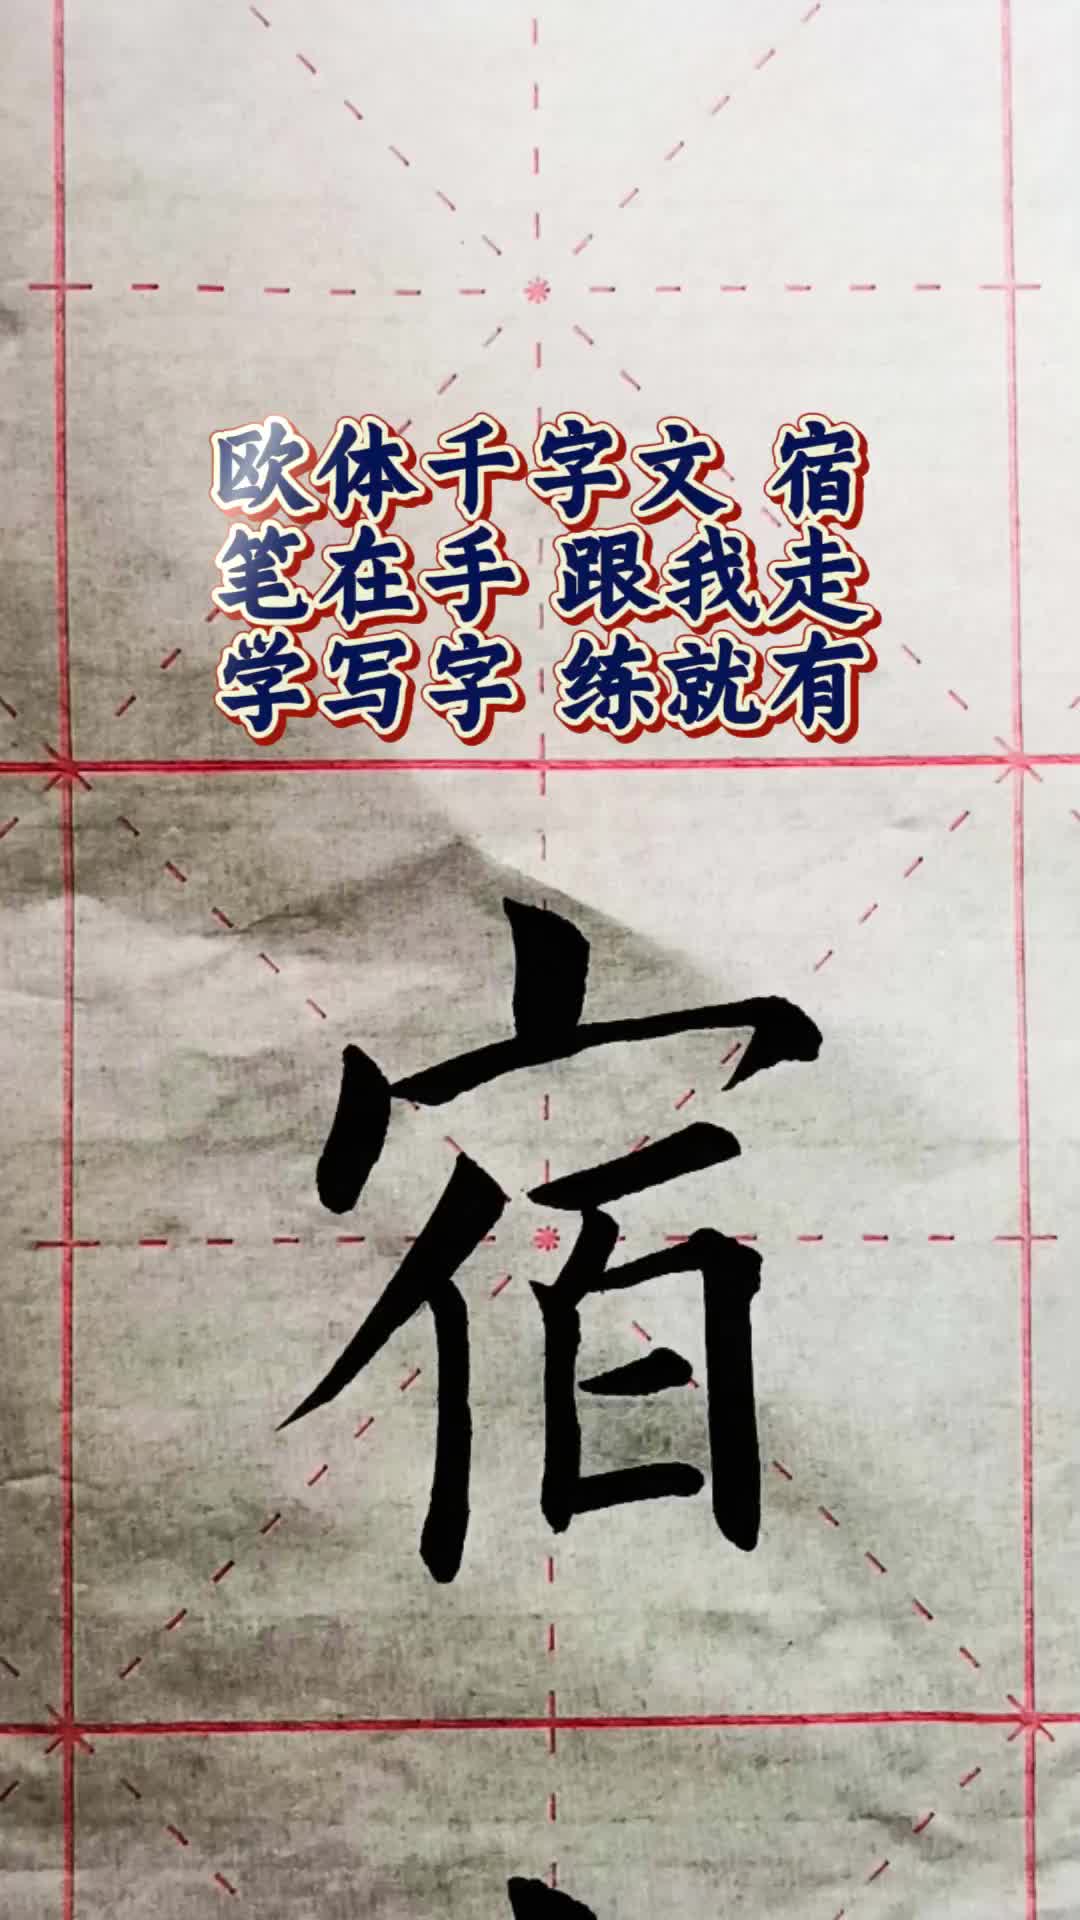 欧体千字文 宿
笔在手 跟我走
学写字 练就有
宿